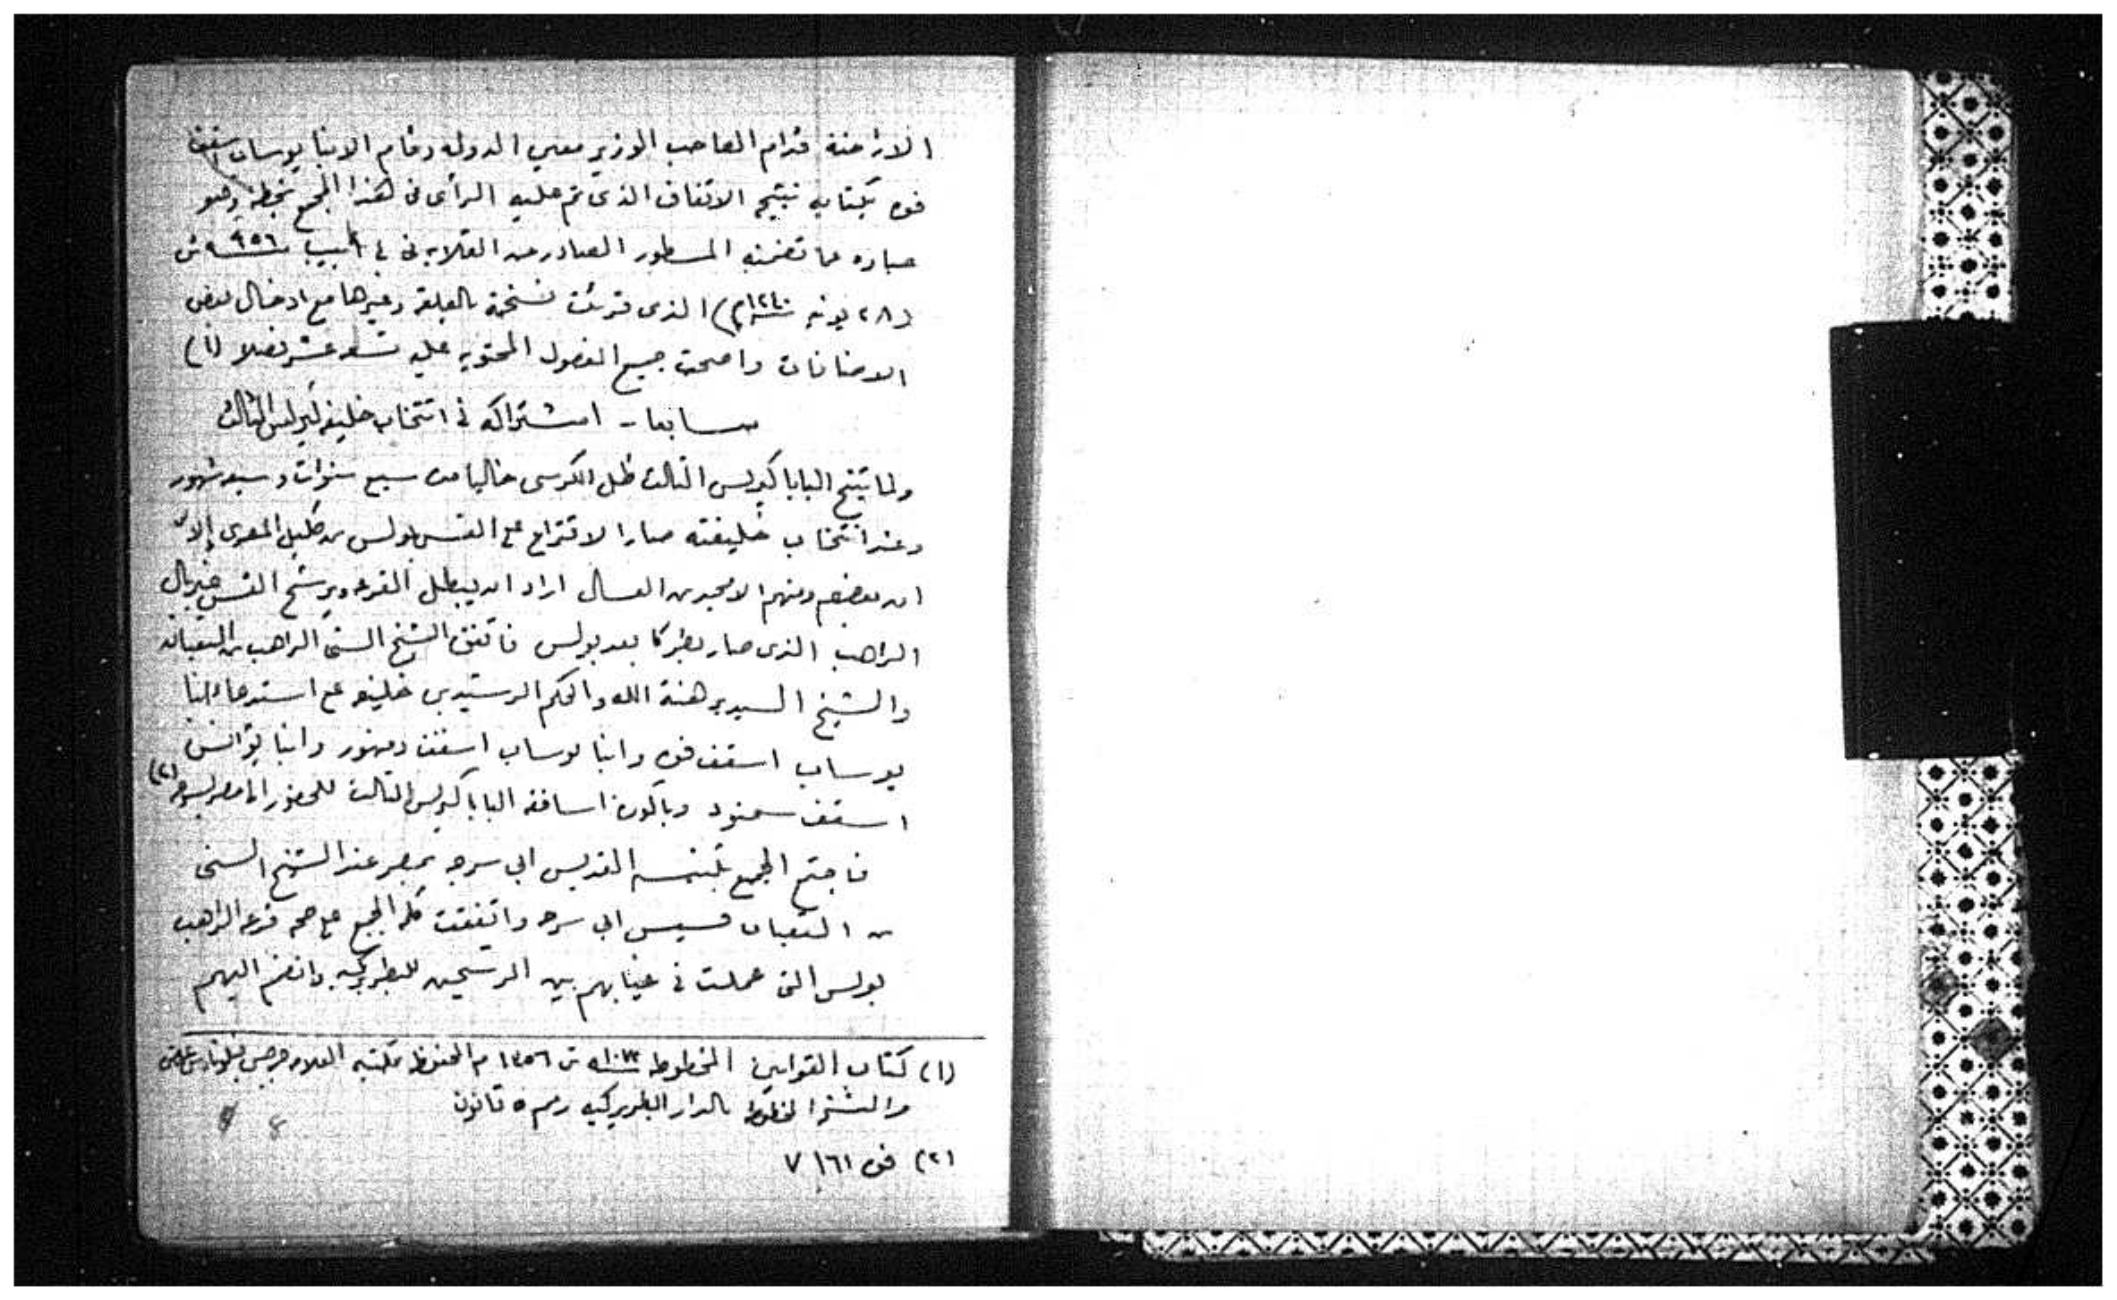 الاراخنة قدام الصاحب الوزير معين الدوله وقام الانبا يوساب اسقف
فوه بكتابه نتيجه الاتفاق الذى تم عليه الرأى فى هذا المجمع بخطه وهو
عباره عما تضمنه المسطور الصادر من القلايه فى ٤ أبيب سنة ٩٥٦ ش
(٢٨ يونيه سنة ١٢٤٠م) الذى قرئت نسخته بالقلعة وغيرها مع ادخال بعض
الاضافات واضحت جميع الفصول المحتويه عليه تسعه عشر فصلا (١)
سابعا - اشتراكه فى انتخاب خليفه كيرلس الثالث
ولما تنيح البابا كيرلس الثالث ظل الكرسى خاليا مدة سبع سنوات و سبعه شهور
وعند انتخاب خليفته صار الاقتراع على القس بولس بن كليل المصرى إلا
ان بعضهم ومنهم الامجد بن العسال اراد ان يبطل القرعه ويرشح القس غبريال
الراهب الذى صار بطركا بعد بولس فاتفق الشيخ السنى الراهب بن الثعبان
والشيخ السديد هبة الله والحكم الرستيدى خليفه على استدعاء انبا
يوساب اسقف فوه وانبا يوساب اسقف دمنهور وانبا يؤانس
اسقف سمنود وباكورة اساقفة البابا كيرلس الثالث للحضور الى مصر بسرعه (٢)
فاجتمع المجمع بكنيسة القديس ابى سرجه بمصر عند الشيخ السنى
بن الثعبان قسيس ابى سرجه واتفقت كلمة المجمع على صحه قرعه الراهب
بولس التى عملت فى غيابهم بين المرشحين للبطريركيه وانضم اليهم
(١) كتاب القوانين المخطوط سنة ١٠٧٣ ش ١٣٥٦ م المحفوظ بمكتبه العلامه جرجس فيلوثاوس عوض
والنسخة المخطوطة بالدار البطريركيه رقم ٥ قانون
8
(٢) فوه ١٦١ ٧